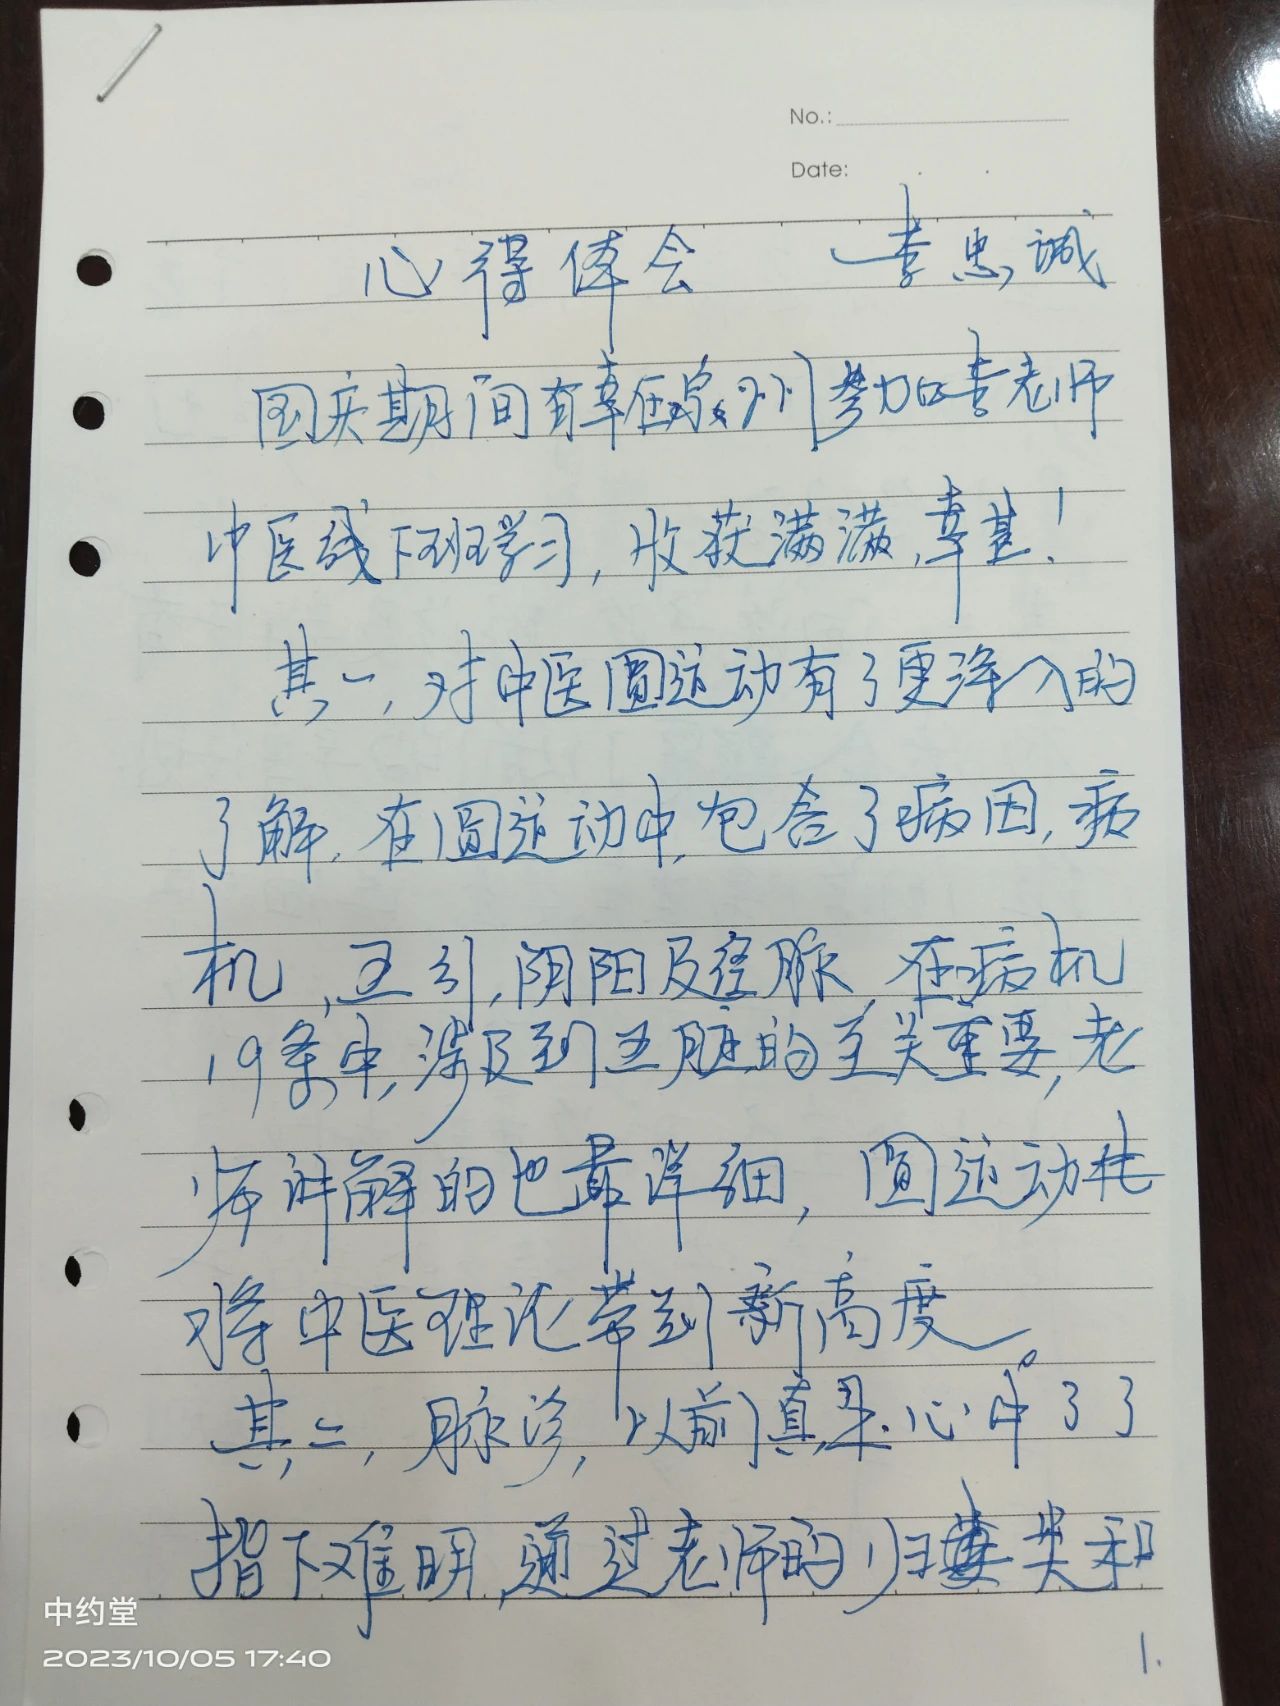 No.:
Date:
心得体会 李忠诚
国庆期间有幸在泉州参加李老师
中医线下班学习,收获满满,幸甚!
其一,对中医圆运动有了更深入的
了解,在圆运动中,包含了病因,病
机,五行,阴阳及经脉,在病机
19条中,涉及到五脏的至关重要,老
师讲解的也最详细,圆运动能
将中医理论带到新高度。
其二,脉诊,以前真是心中了了
指下难明,通过老师的归类和
1.
中约堂
2023/10/05 17:40